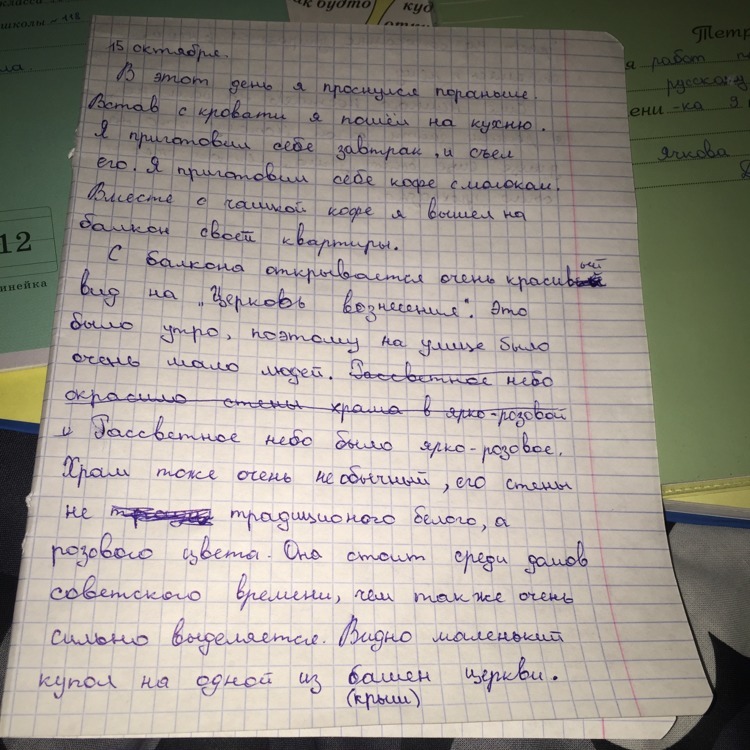 класси
школы № 118
ма.
12
инейка
ак будто
куд
Тетр
я работ п
русскому
ени-ка 9
Ячкова
15 октября.
В этот день я проснулся пораньше.
Встав с кровати я пошёл на кухню.
Я приготовил себе завтрак и съел
его. Я приготовил себе кофе с молоком.
Вместе с чашкой кофе я вышел на
балкон своей квартиры.
С балкона открывается очень красивый
вид на „Церковь вознесения". Это
было утро, поэтому на улице было
очень мало людей. Рассветное небо
окрасило стены храма в ярко-розовой
Рассветное небо было ярко-розовое.
Храм тоже очень необычный, его стены
не традиционого белого, а
розового цвета. Она стоит среди домов
советского времени, чем также очень
сильно выделяется. Видно маленький
купол на одной из башен церкви.
(крыш)